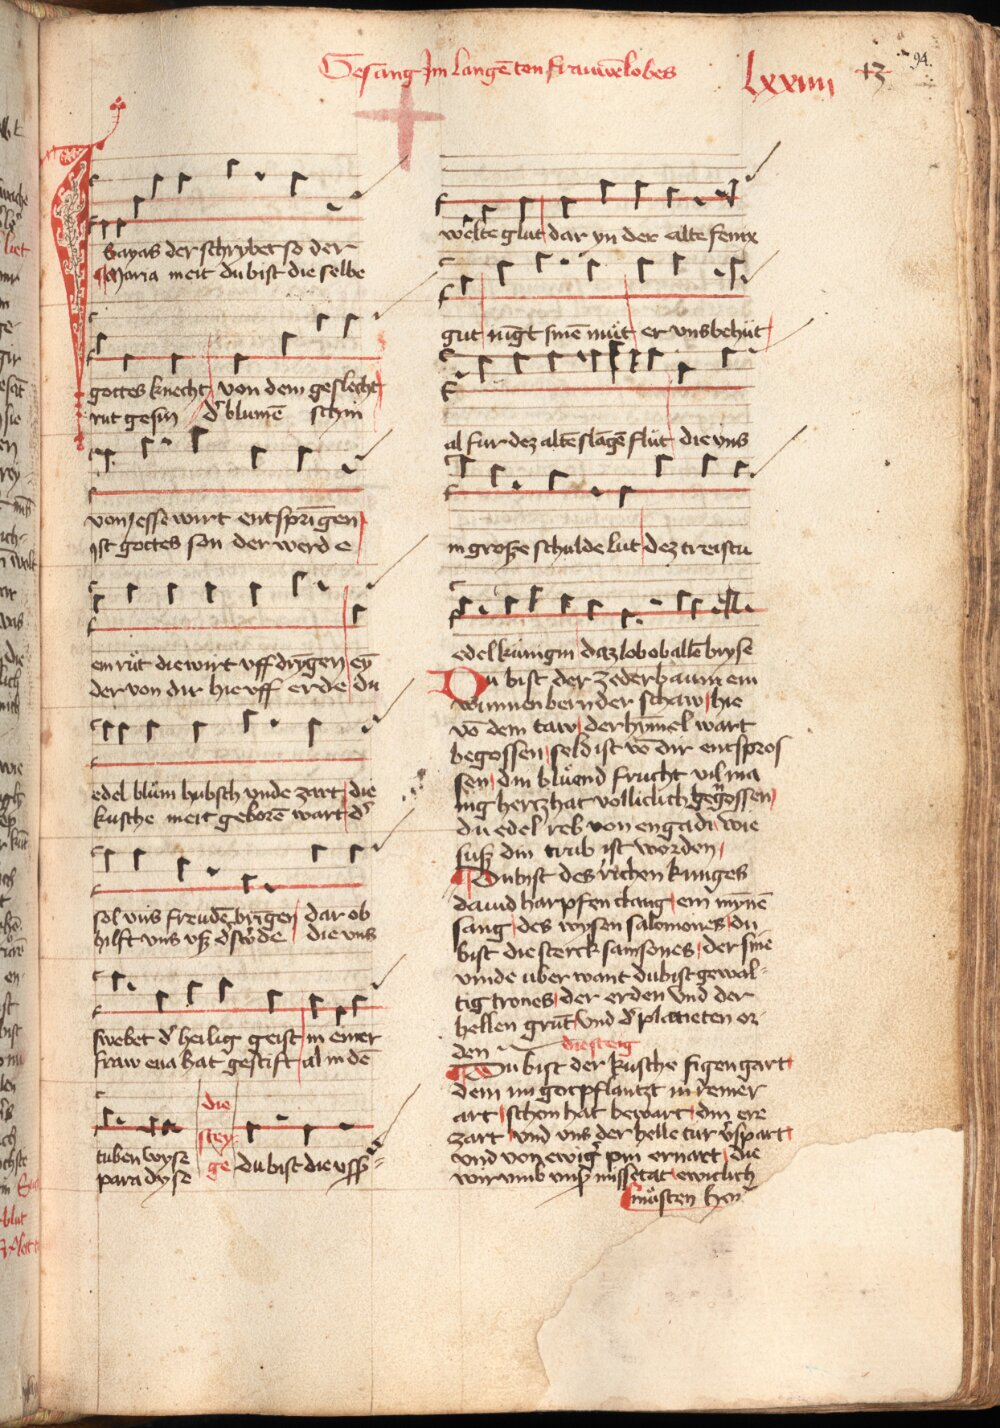 Gesang Im langē ton frauwēlobes
lxxiiii
94.
ysayas der schrybet so der
Maria meit du bist die selbe
gottes knecht von dem geslecht
rut gesin d' blumē schin
von Jesse wirt entsprīgen
ist gottes son der werde
ein růt die wirt vff drīgen ey
der von dir hie vff erde du
edel blům hubsch vnde zart die
kusche meit geborē wart d'
sol vns freudē brīgen dar ob
hilft vns vß d' swde die vns
swebet d' heilig geist in einer
fraw eua hat gestift al in dē
tuben wyse
paradyse
die
stey
ge
du bist die vff
welte glut dar yn der alte fenix
gut nigt sinē můt er vns behůt
al fur dez altē slāgē flůt die vns
in große schulde lut dez treistu
edel kūnigin daz lob ob allē bryse
Du bist der zederbaum ein
winnenbernder schaw hie
vō dem taw der hymel wart
begossen seld ist vō dir entspros
sen din blůend frucht vil ma
nig hertz hat volliclich begossen
du edel reb von engadi wie
suß din trub ist worden
Du bist des richen kunges
dauid harpfen clang ein mynē
sang des wysen salomones du
bist die sterck samsones der sine
vinde uber want du bist gewal-
tig trones der erden vnd der
hellen grūt vnd d' planeten or-
den
die steig
Du bist der kusche figengart
dem im got pflantzt in reiner
art schon hat bewart din ere
zart vnd vns der helle tur v'spart
vnd von ewig' pin ernart die
wir vmb vnß missetat ewiclich
můsten hon